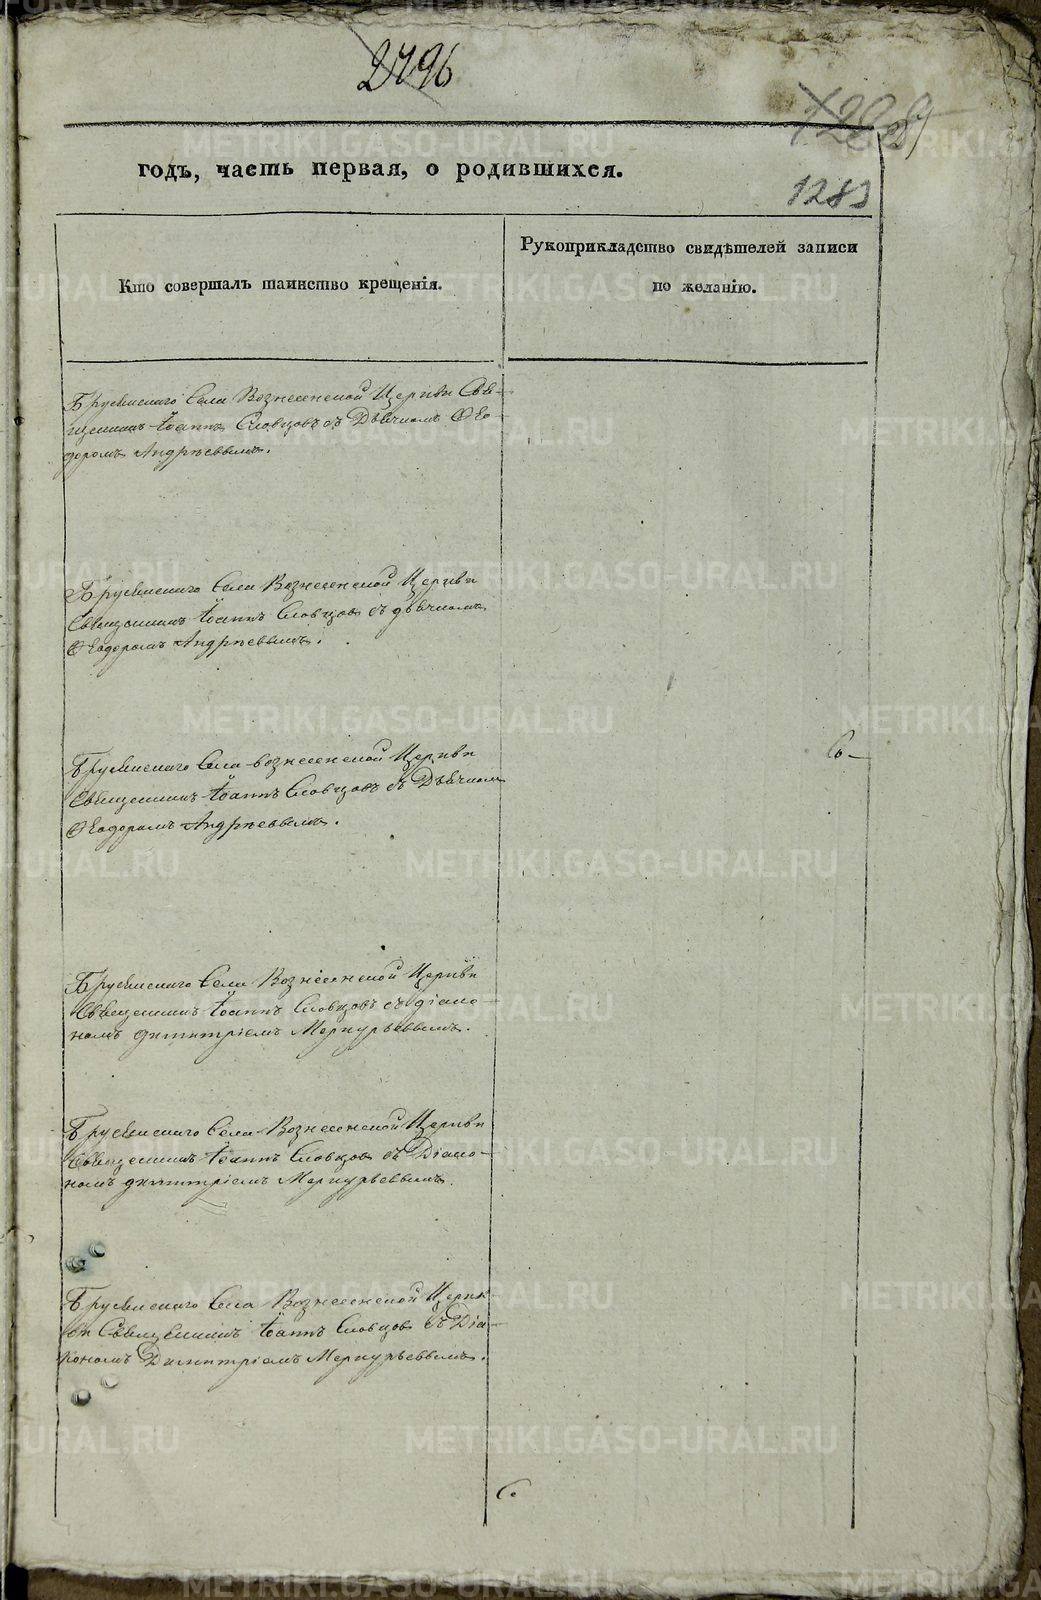 2796
1289
годъ, часть первая, о родившихся.
1283
Кто совершалъ таинство крещенія.
Рукоприкладство свидѣтелей записи
по желанію.
Бруснскаго Села Вознесенской Церкви Свя-
щенникъ Іоаннъ Словцовъ съ Дьячкомъ Ѳео-
доромъ Андрѣевымъ.
Бруснскаго Села Вознесенской Церкви
Священникъ Іоаннъ Словцовъ съ дьячкомъ
Ѳеодоромъ Андрѣевымъ.
Бруснскаго Села вознесенской Церкви
Священникъ Іоаннъ Словцовъ съ Дьячкомъ
Ѳеодоромъ Андрѣевымъ.
Бруснскаго Села Вознесенской Церкви
Священникъ Іоаннъ Словцовъ съ діако-
номъ димитріемъ Меркурьевымъ.
Бруснскаго Села Вознесенской Церкви
Священникъ Іоаннъ Словцовъ съ Діако-
номъ димитріемъ Меркурьевымъ.
Бруснскаго Села Вознесенской Церк-
ви Священникъ Іоаннъ Словцовъ съ Діа-
кономъ Димитріемъ Меркурьевымъ.
METRIKI.GASO-URAL.RU